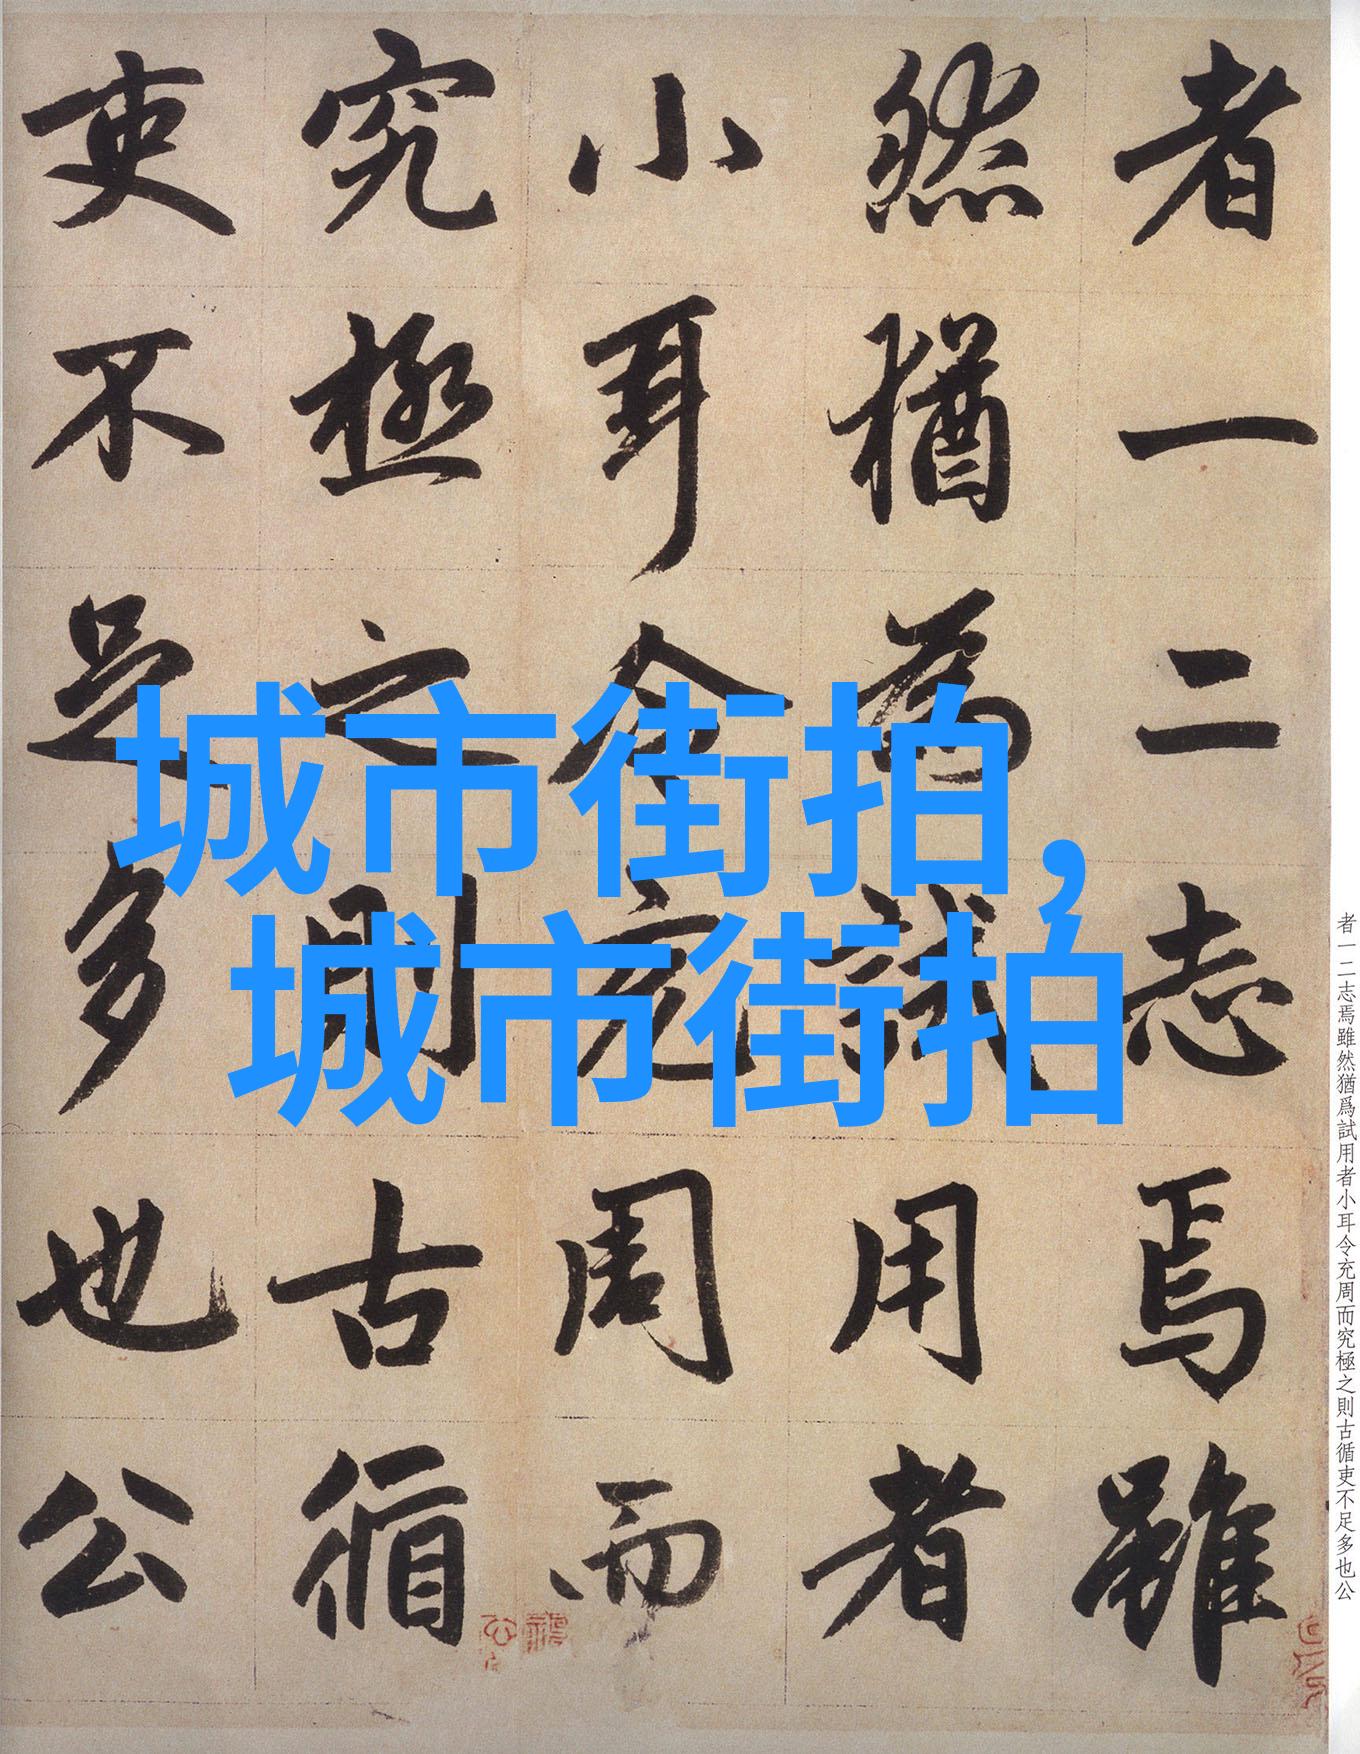 者一二志焉雖
然猶為試用者
小耳令充周而
究極之則古循
吏不足多也公
城市街拍,
城市街拍
者一二志焉雖然猶爲試用者小耳令充周而究極之則古循吏不足多也公